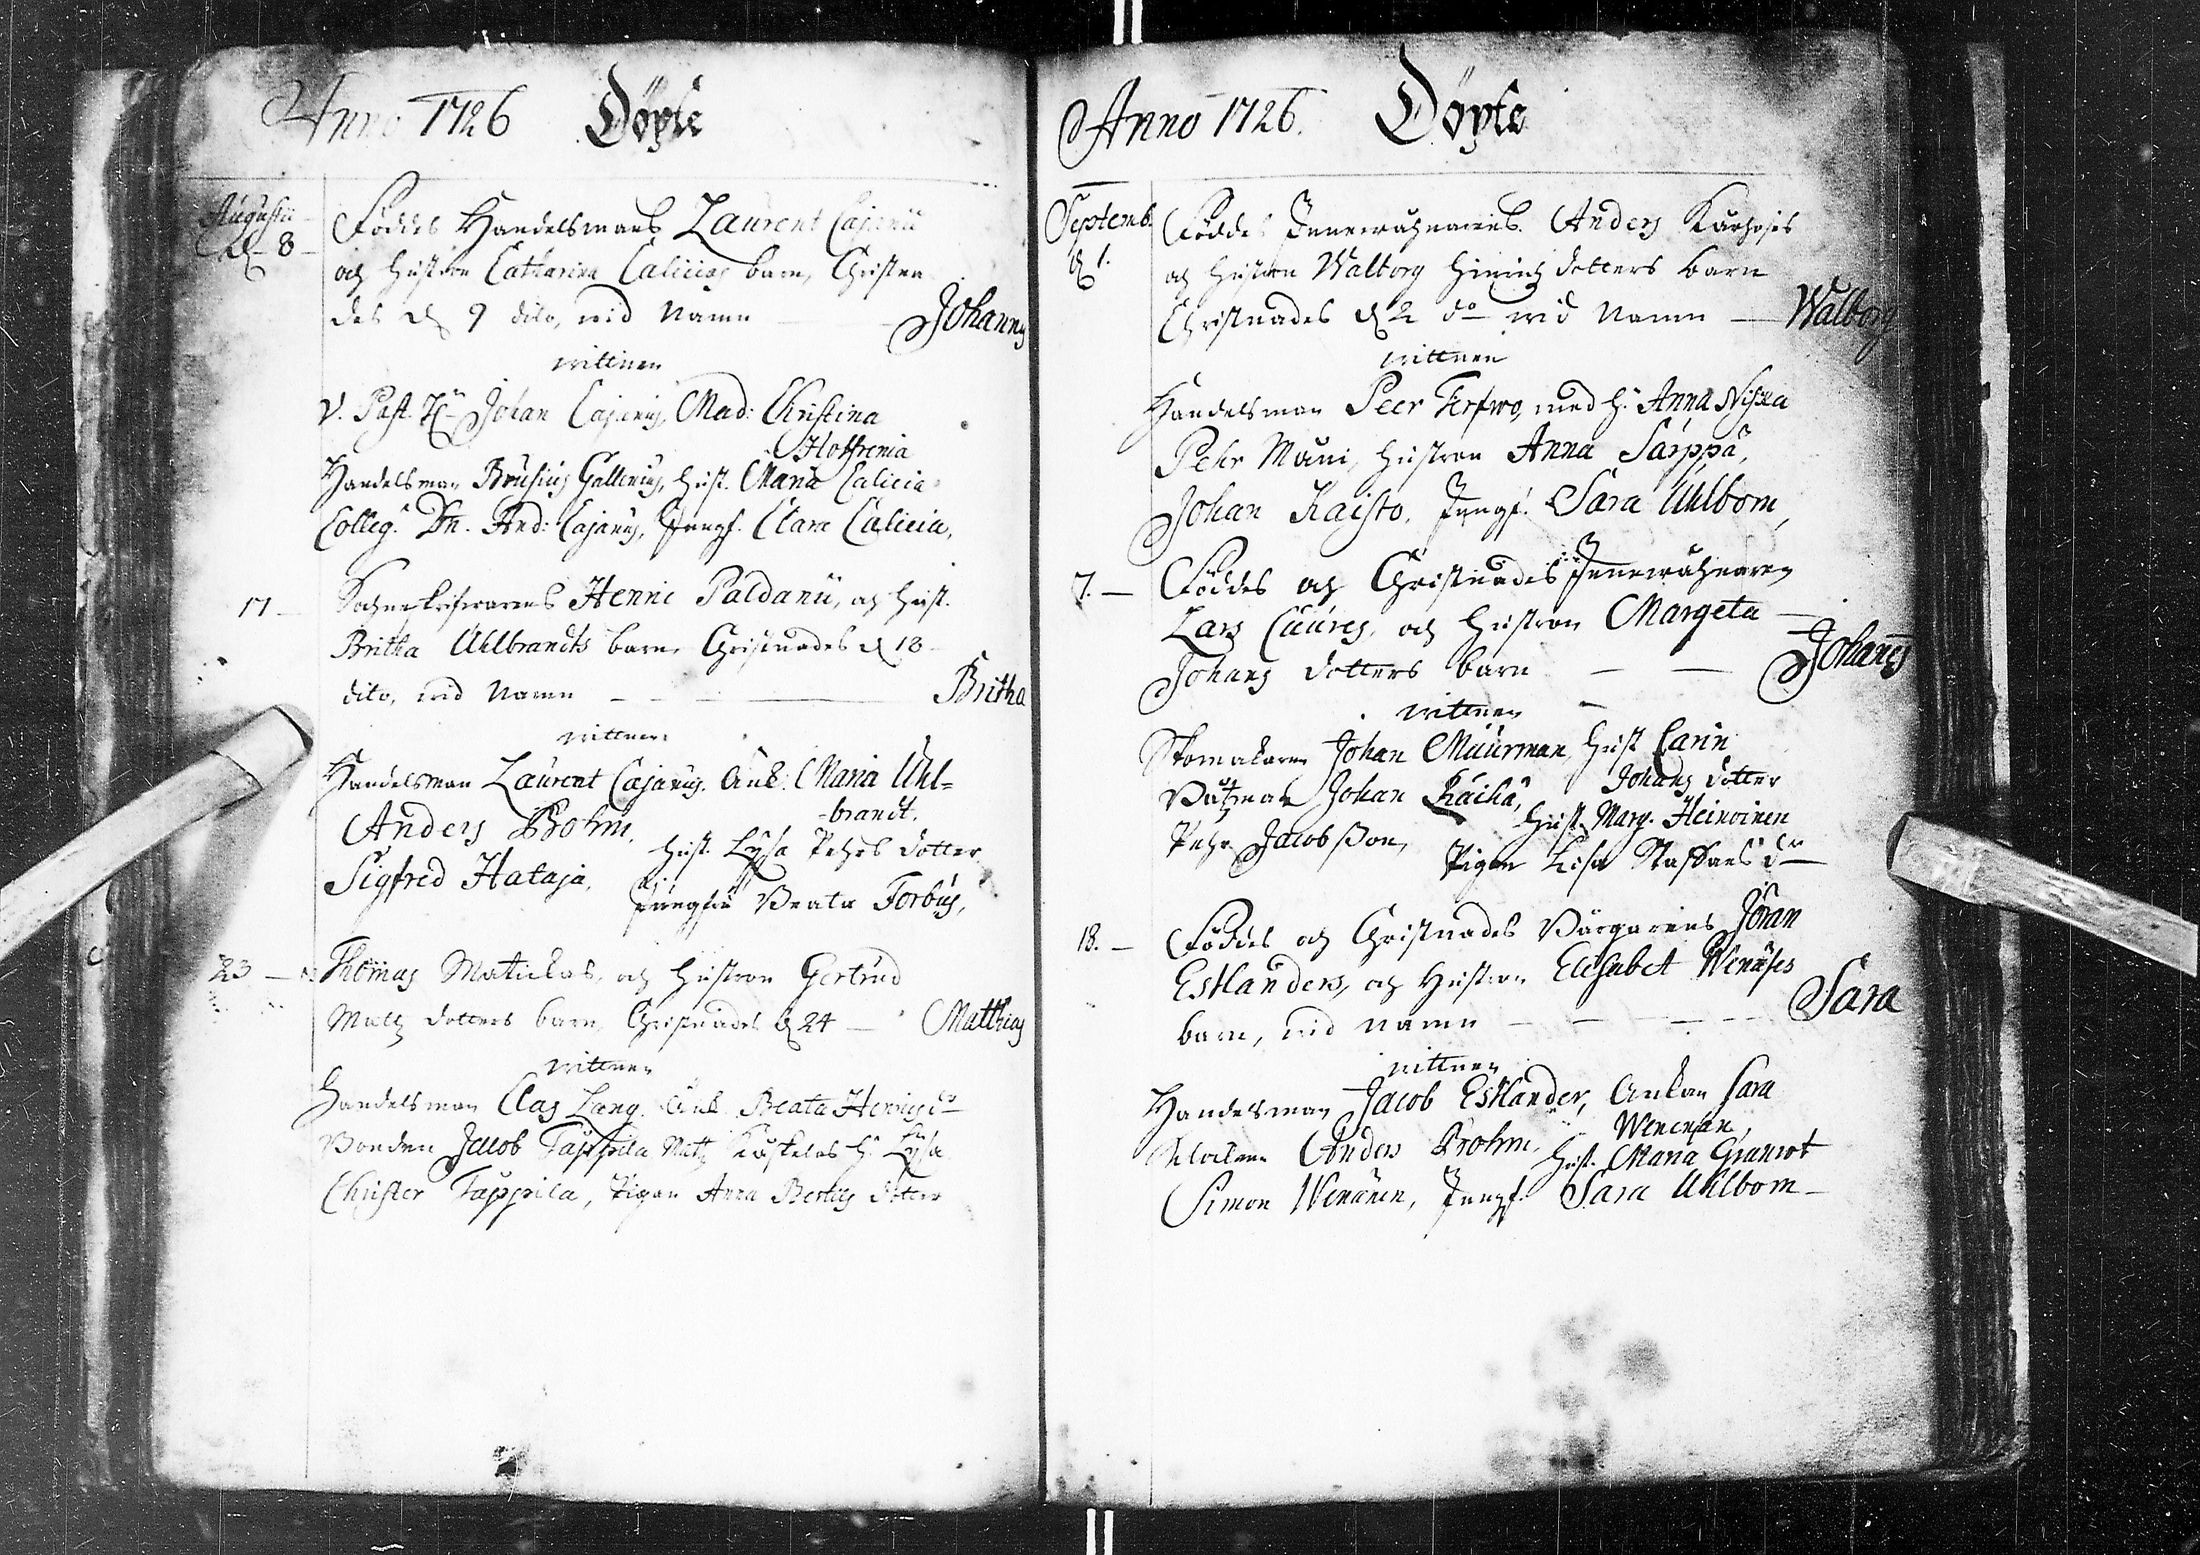 Anno 1726 Döpte
Augustii
d. 8
Föddes Handelsmans Laurent Cajanii
och hustron Catharina Caliciæ barn, Christna
des d. 9 dito, wid Namn Johannes
wittnen
V. Past. Hr Johan Cajanus, Mad: Christina
Hoffrenia
Handelsman Brusius Gallenius, hust. Maria Calicia
Colleg. Dn. And: Cajanus, Jungf. Clara Calicia,
17 Sochneskrifwarens Henric Paldanii, och hust.
Britha Uhlbrandts barn Christnades d 18
dito, wid Namn Britha
wittnen
Handelsman Laurent Cajanus. Enk: Maria Uhl=
-brandt.
Anders Brohm, hust. Lysa Pehrs dotter
Sigfred Hataja, Jungfru Beata Forbus,
23 Thomas Matickas, och hustron Gertrud
Matz dotters barn, Christnades d 24 Matthias
wittnen
Handelsman Clas Lang. Enk. Beata Henrics dr
Bonden Jacob Tappila Matz h. Lysa
Christer Tappila, Pigan Anna Bertils dotter
Anno 1726. Döpte
Septemb.
d 1.
Föddes Innewåhnarens Anders Karhoses
och hustron Walborg Hinrichs dotters barn
Christnades d 2 do wid Namn Walborg
wittnen
Handelsman Peer Terfwo, med h. Anna Niska
Pehr Mauni, hustron Anna Sarppa,
Johan Kaisto. Jungf. Sara Uhlbom,
7. Föddes och Christnades Innewåhnaren
Lars Cuures, och hustron Margeta
Johans dotters barn Johannes
wittnen
Skomakaren Johan Muurman, hust Carin
Johans dotter
Båtzman Johan Räihä, hust. Marg. Heinoinen
Pehr Jacobsson, Pigan Lisa Staffans dr
18. Föddes och Christnades Borgarens Jöran
Estlanders, och hustron Elisabet Wenäses
barn, wid namn Sara
wittnen
Handelsman Jacob Estlander, Enkan Sara
Wenensan,
Klockaren Anders Brohm, hust. Maria Granrot
Simon Wenänen, Jungf. Sara Uhlbom